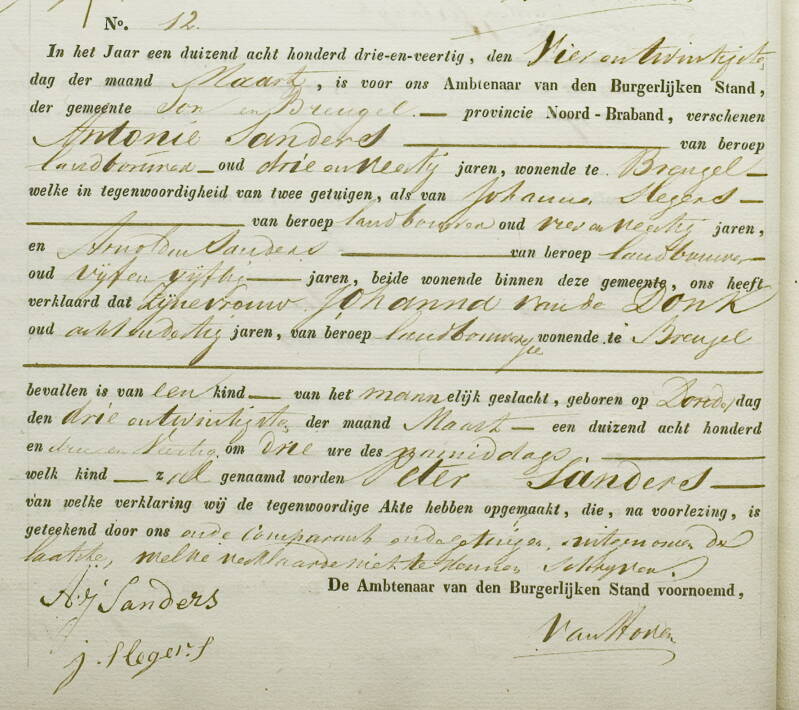 No. 12.
In het Jaar een duizend acht honderd drie-en-veertig, den Vier en twintigste
dag der maand Maart, is voor ons Ambtenaar van den Burgerlijken Stand,
der gemeente Son en Breugel. — provincie Noord-Braband, verschenen
Antonie Sanders — van beroep
landbouwer — oud drie en veertig jaren, wonende te Breugel —
welke in tegenwoordigheid van twee getuigen, als van Johannes Slegers —
— van beroep landbouwer oud vier en veertig jaren,
en Arnoldus Sanders — van beroep landbouwer
oud vijf en vijftig — jaren, beide wonende binnen deze gemeente, ons heeft
verklaard dat Zijne vrouw Johanna van de Donk
oud acht en dertig jaren, van beroep landbouwersse wonende te Breugel
bevallen is van een kind — van het mannelijk geslacht, geboren op Donderdag
den drie en twintigsten der maand Maart — een duizend acht honderd
en drie en Veertig om drie ure des namiddags, —
welk kind — zal genaamd worden Peter Sanders —
van welke verklaring wij de tegenwoordige Akte hebben opgemaakt, die, na voorlezing, is
geteekend door ons en de Comparant en de getuigen, uitgenomen de
laatste, welke verklaarde niet te kunnen Schrijven.
De Ambtenaar van den Burgerlijken Stand voornoemd,
A. Sanders
Van Hoven
j. Slegers